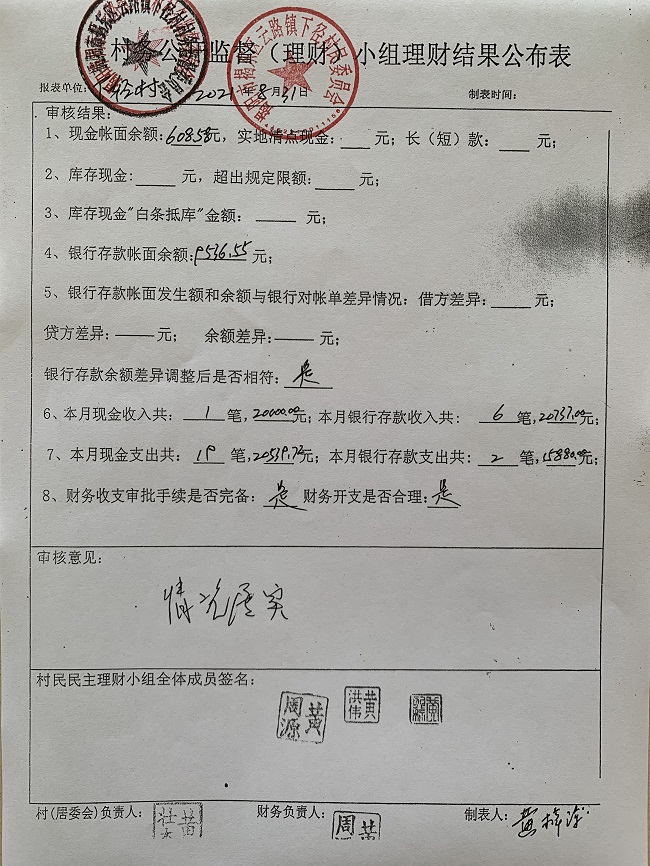 村务公开监督（理财）小组理财结果公布表
报表单位: 下径村 2021年8月31日 制表时间:
审核结果:
1、现金帐面余额:608.58元，实地清点现金: 元；长（短）款: 元；
2、库存现金: 元，超出规定限额: 元；
3、库存现金"白条抵库"金额: 元；
4、银行存款帐面余额:9536.55元；
5、银行存款帐面发生额和余额与银行对帐单差异情况: 借方差异: 元；
贷方差异: 元； 余额差异: 元；
银行存款余额差异调整后是否相符: 是
6、本月现金收入共: 1 笔,20000.00元；本月银行存款收入共: 6 笔,20737.00元；
7、本月现金支出共: 19 笔,20539.72元；本月银行存款支出共: 2 笔,15880.00元；
8、财务收支审批手续是否完备: 是 财务开支是否合理: 是
审核意见:
情况属实
村民民主理财小组全体成员签名:
黄周源 黄洪伟
村(居委会)负责人: 黄壮 财务负责人: 黄周 制表人: 黄